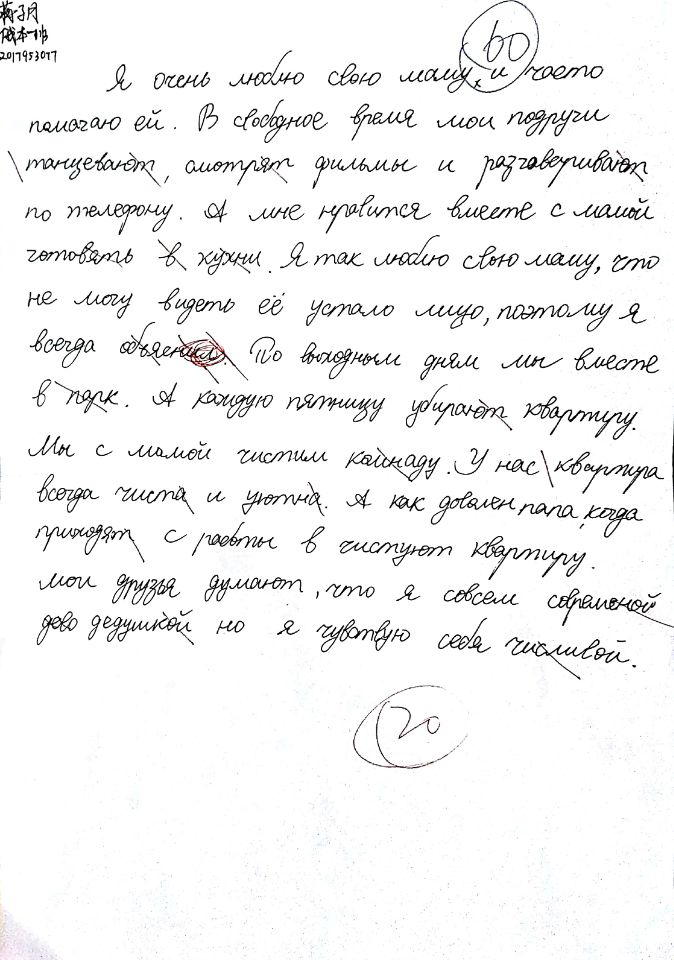 2017953077
60
Я очень люблю свою маму, и часто
помогаю ей. В свободное время мои подруги
танцевают, смотрят фильмы и разговеривают
по телефону. А мне нравится вместе с мамой
готовять в кухни. Я так люблю свою маму, что
не могу видеть её устало лицо, поэтому я
всегда
По выходным дням мы вместе
в парк. А каждую пятницу убирают квартиру.
Мы с мамой чистим кайнаду. У нас квартира
всегда чиста и уютна. А как доволен папа, когда
приходят с работы в чистуют квартиру.
мои друзья думают, что я совсем современой
дево дедушкой но я чувствую себя числивой.
20